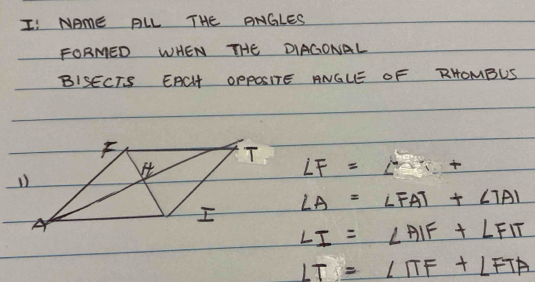 I: NAME ALL THE ANGLES
FORMED WHEN THE DIAGONAL
BISECTS EACH OPPOSITE ANGLE OF RHOMBUS
1)
F
H
T
A
I
∠F = ∠ +
∠A = ∠FAT + ∠TAI
∠I = ∠AIF + ∠FIT
∠T = ∠ITF + ∠FTA